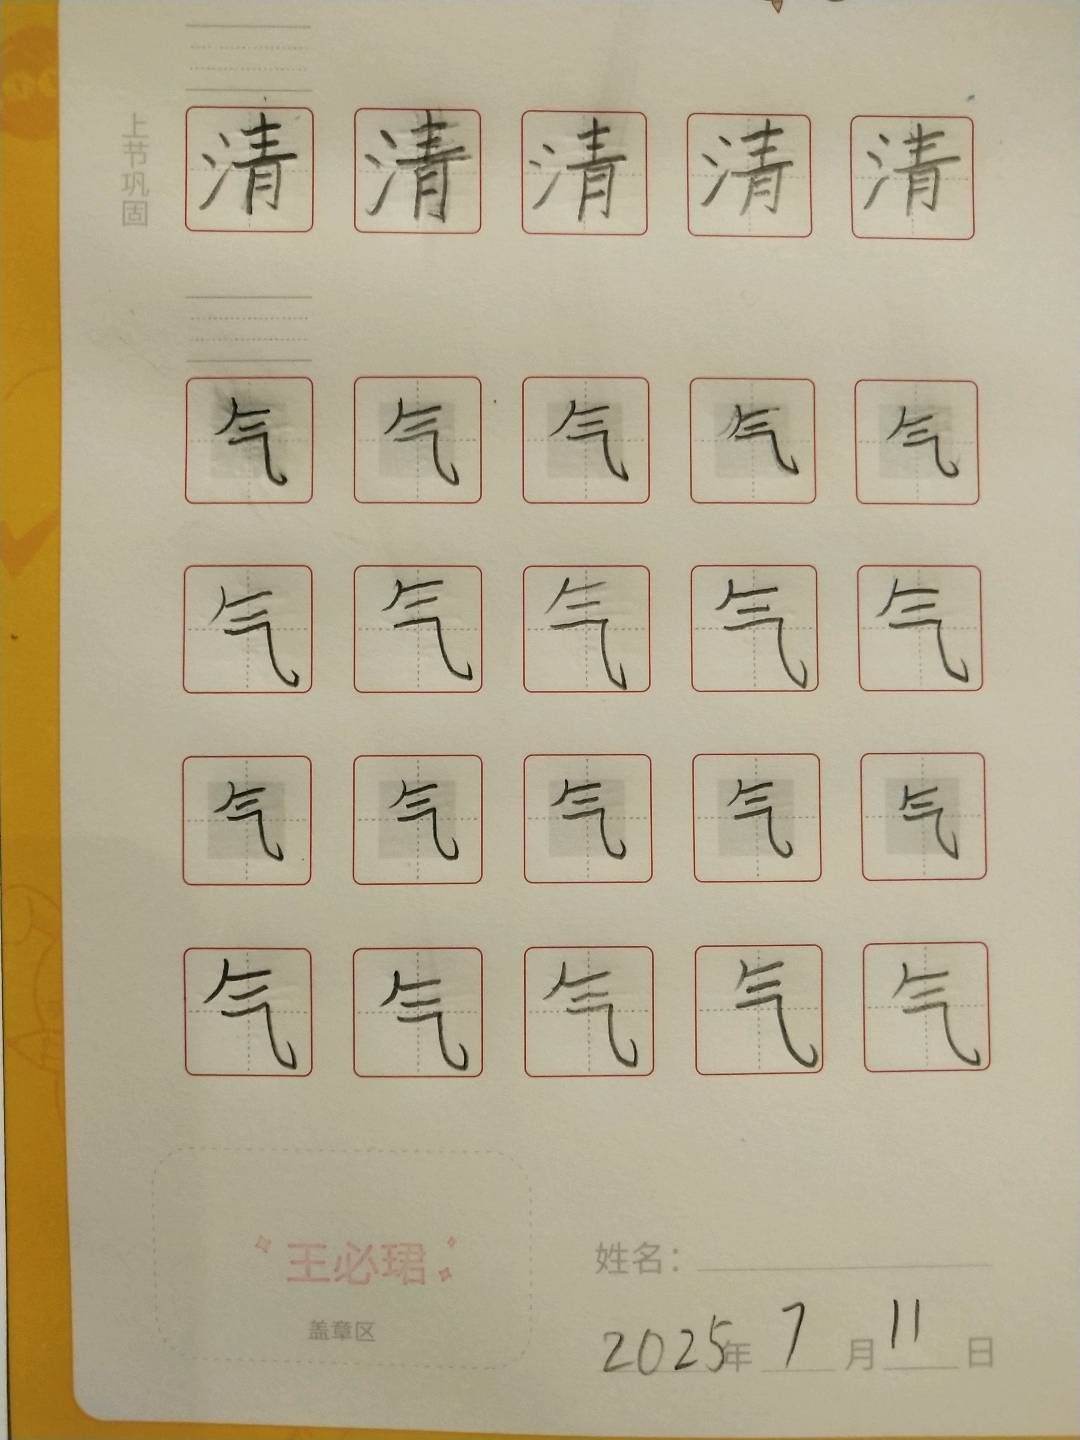 上节巩固
清 清 清 清 清
气 气 气 气 气
气 气 气 气 气
气 气 气 气 气
气 气 气 气 气
王必珺
盖章区
姓名：
2025年 7 月 11 日